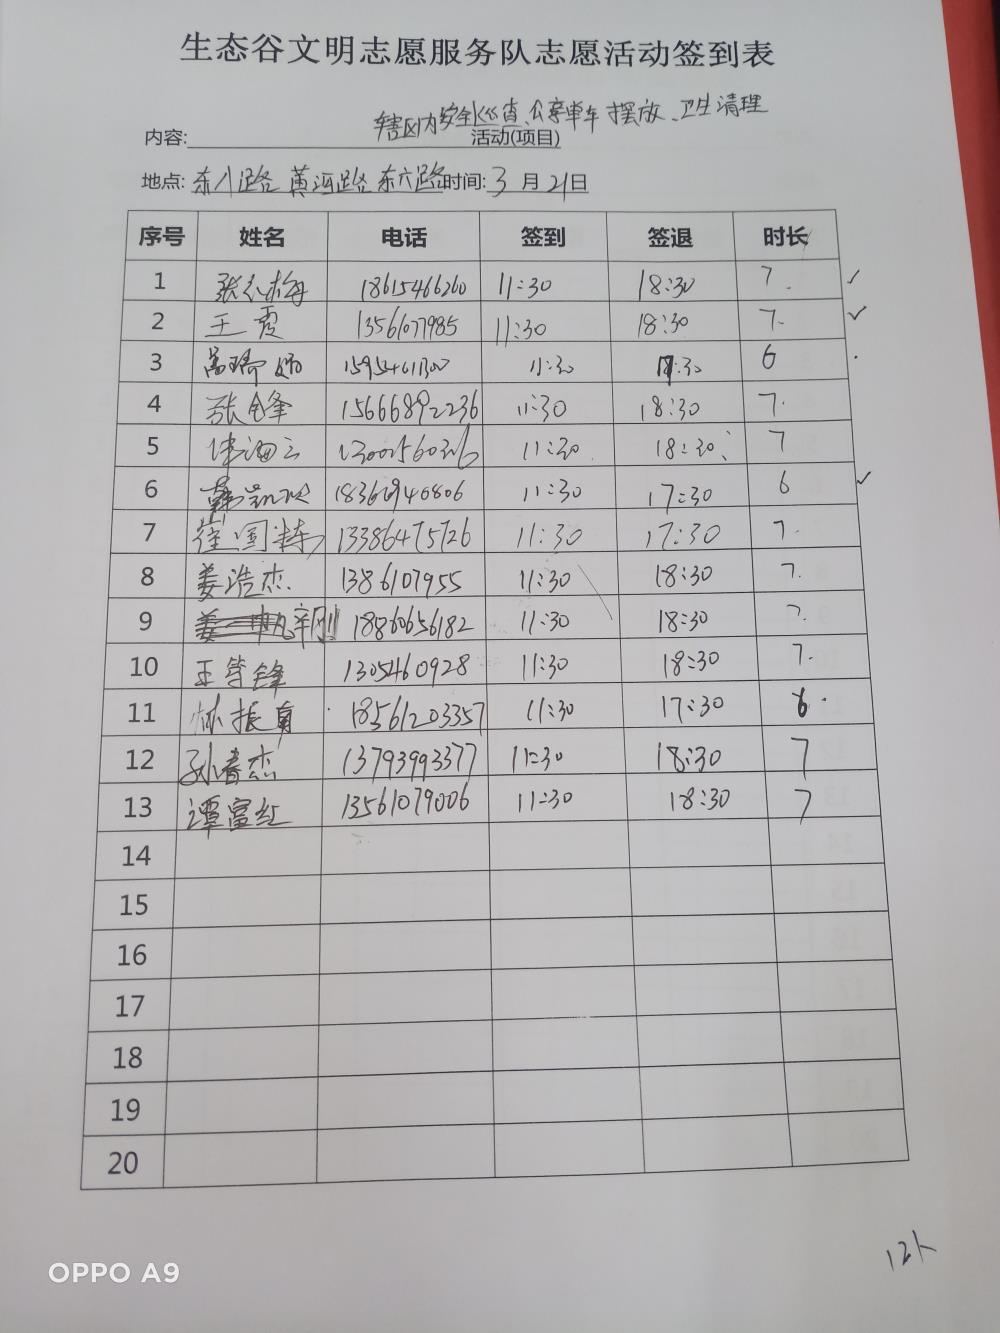 生态谷文明志愿服务队志愿活动签到表
辖区内安全巡查、公享单车摆放、卫生清理
内容: 活动(项目)
地点: 东八路 黄河路 东六路 时间: 3 月 21 日
序号 姓名 电话 签到 签退 时长
1 18615466260 11:30 18:30 7. ✓
2 王霞 1356107985 11:30 18:30 7. ✓
3 11:30 17:30 6
4 张锋 15666892236 11:30 18:30 7.
5 11:30 18:30 7
6 11:30 17:30 6 ✓
7 崔国栋 13386475726 11:30 17:30 7.
8 姜浩杰 1386107955 11:30 18:30 7.
9 辛刚 18860656182 11:30 18:30 7.
10 1305460928 11:30 18:30 7.
11 林振良 18561203357 11:30 17:30 6.
12 孙春杰 13793993377 11:30 18:30 7
13 谭富红 13561079006 11:30 18:30 7
14
15
16
17
18
19
20
12人
OPPO A9